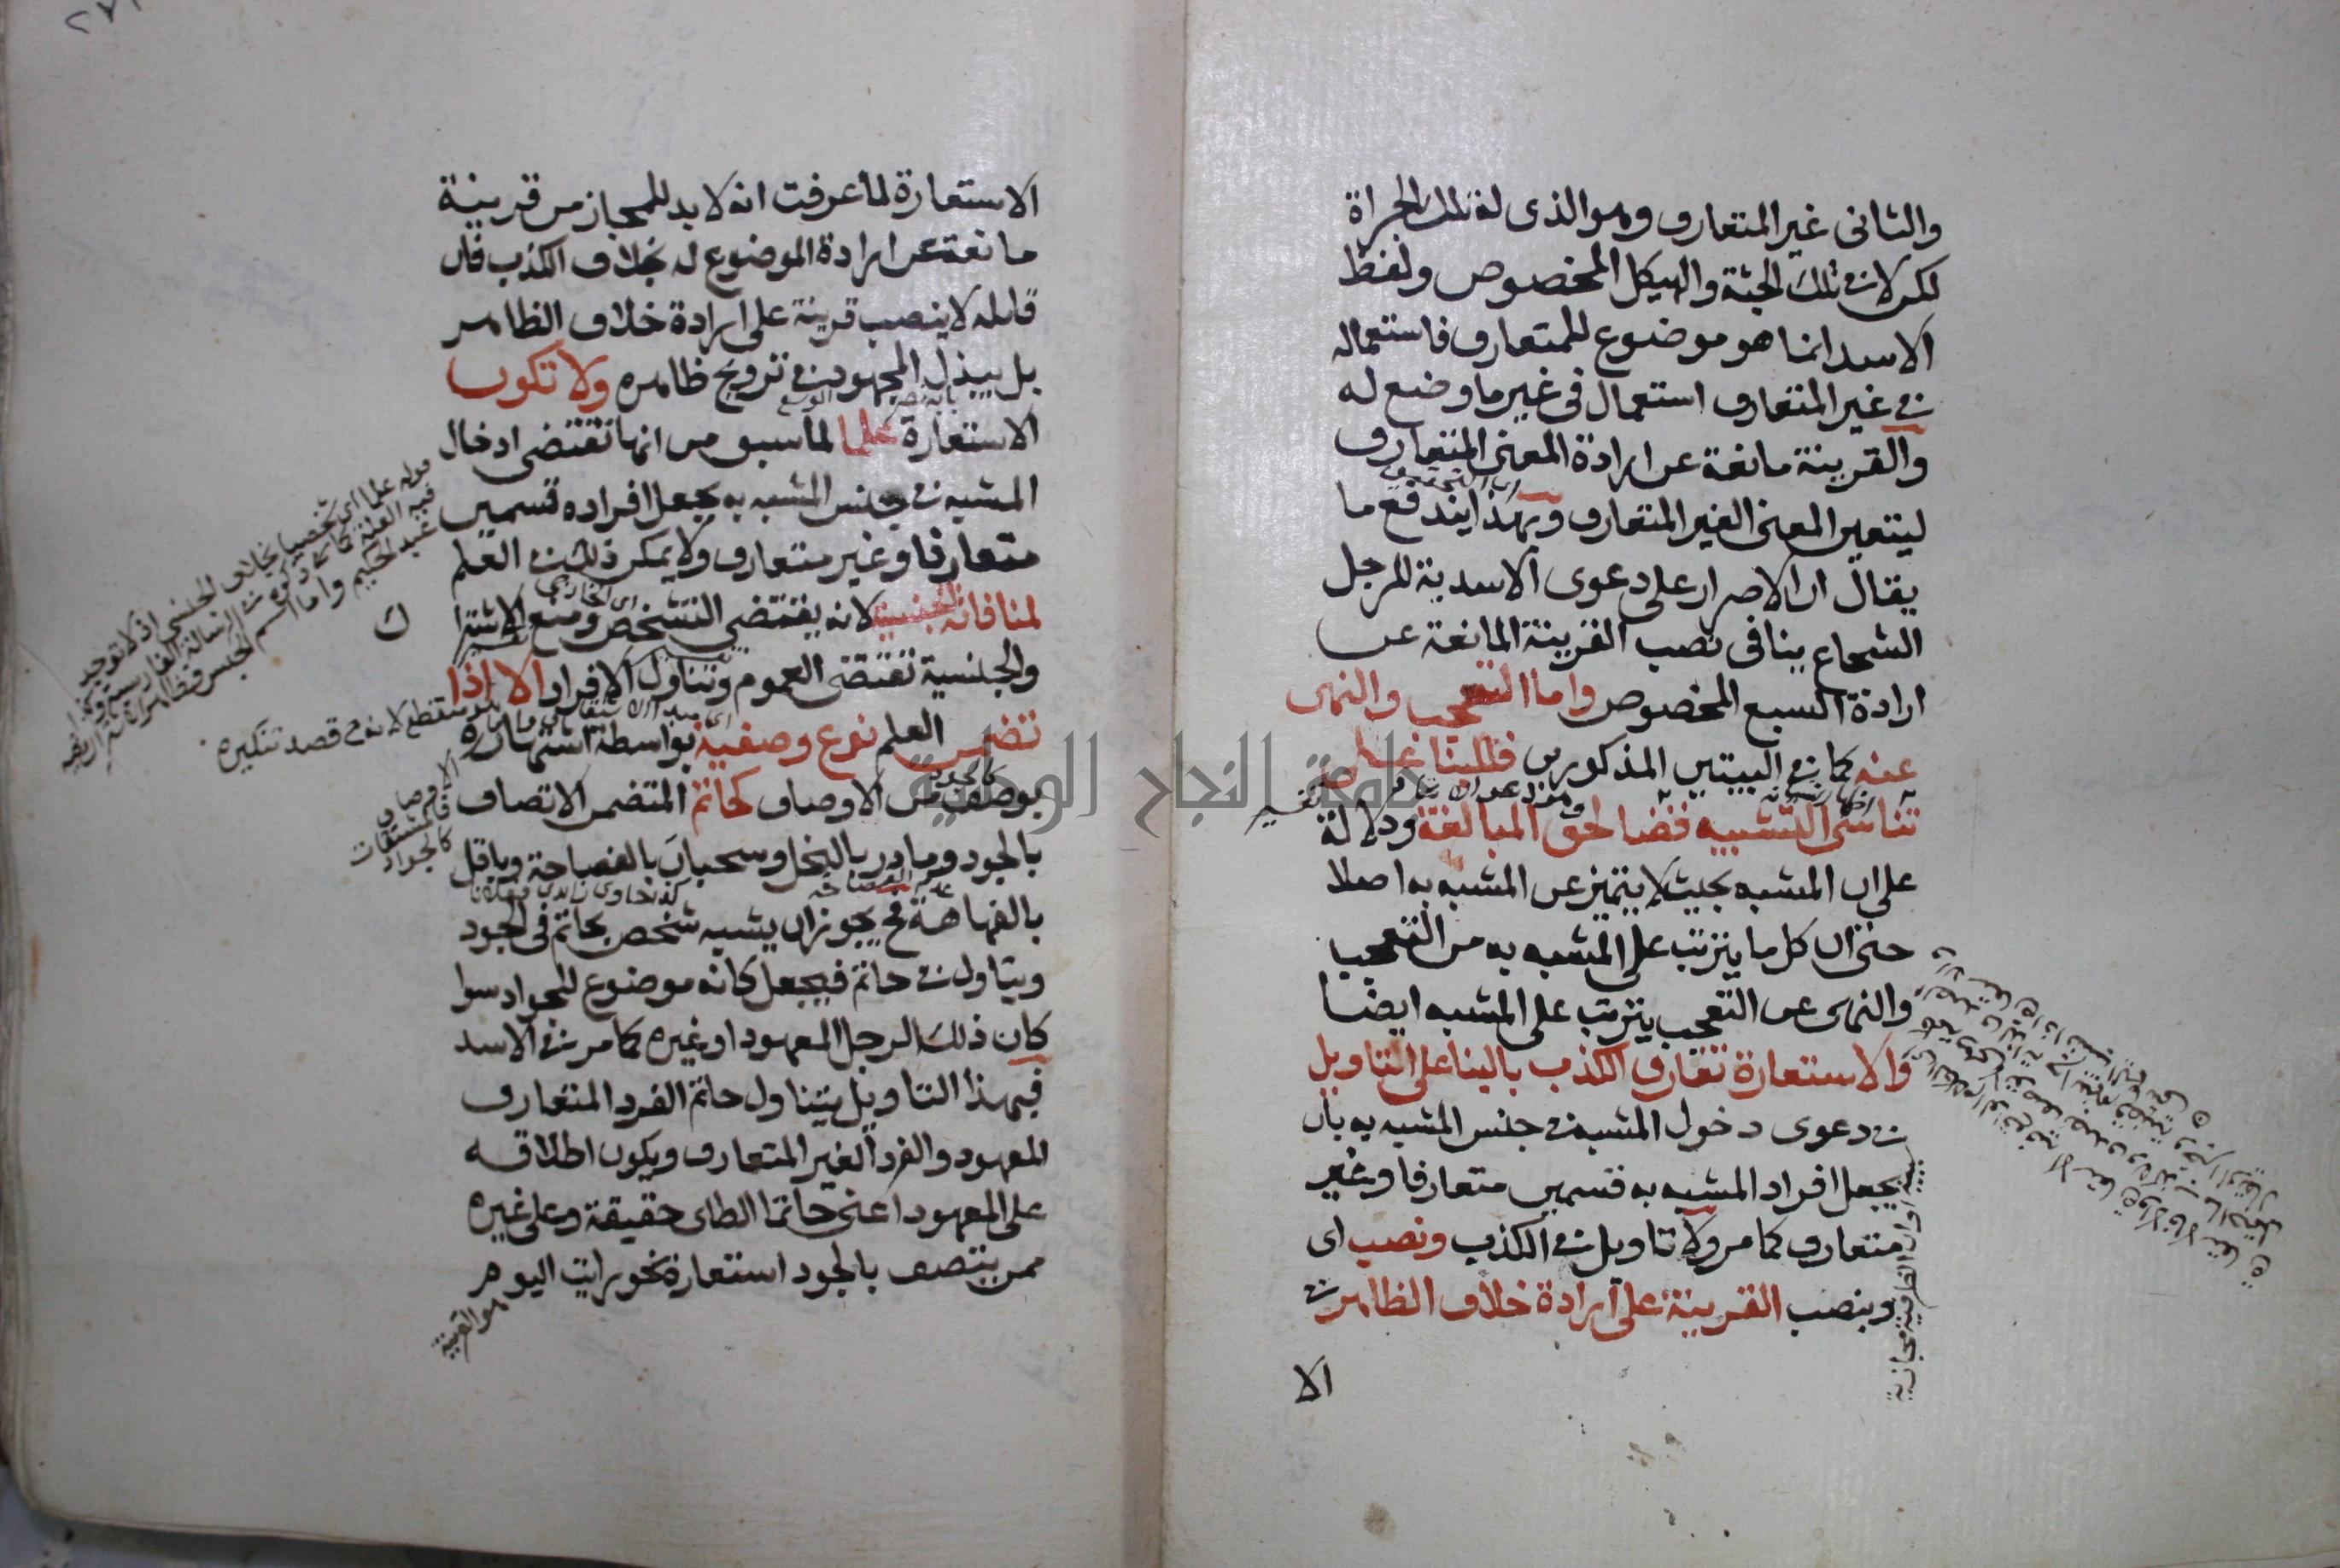 والثانى غير المتعارف وهو الذى له تلك الجراة
لكن لا فى تلك الجثة والهيكل المخصوص ولفظ
الاسد انما هو موضوع للمتعارف فاستعماله
فى غير المتعارف استعمال فى غير ما وضع له
والقرينة مانعة عن ارادة المعنى المتعارف
ليتعين المعنى الغير المتعارف وبهذا يندفع ما
يقال ان الاصرار على دعوى الاسدية للرجل
الشجاع ينافى نصب القرينة المانعة عن
ارادة السبع المخصوص واما التعجب والنهى
عنه كما فى البيتين المذكورين فللبنا على
تناسى التشبيه قضا لحق المبالغة ودلالة
على ان المشبه بحيث لا يتميز عن المشبه به اصلا
حتى ان كل ما يترتب على المشبه به من التعجب
والنهى عن التعجب يترتب على المشبه ايضا
والاستعارة تفارق الكذب بالبنا على التاويل
فى دعوى دخول المشبه فى جنس المشبه به بان
يجعل افراد المشبه به قسمين متعارفا وغير
متعارف كما مر ولا تاويل فى الكذب ونصب اى
وبنصب القرينة على ارادة خلاف الظاهر فى
الا
الاستعارة لما عرفت انه لا بد للمجاز من قرينة
مانعة عن ارادة الموضوع له بخلاف الكذب فان
قائله لا ينصب قرينة على ارادة خلاف الظاهر
بل يبذل المجهود فى ترويج ظاهره ولا تكون
الاستعارة علما لما سبق من انها تقتضى ادخال
المشبه فى جنس المشبه به بجعل افراده قسمين
متعارفا وغير متعارف ولا يمكن ذلك فى العلم
لمنافاته الجنسية لانه يقتضى التشخص ومنع الاشتراك
والجنسية تقتضى العموم وتناول الافراد الا اذا
تضمن العلم نوع وصفية بواسطة اشتهاره
بوصف من الاوصاف كحاتم المتضمن الاتصاف
بالجود ومادر بالبخل وسحبان بالفصاحة وباقل
بالفهاهة فح يجوز ان يشبه شخص بحاتم فى الجود
ويتاول فى حاتم فيجعل كانه موضوع للجواد سوا
كان ذلك الرجل المعهود او غيره كما مر فى الاسد
فبهذا التاويل يتناول حاتم الفرد المتعارف
المعهود والفرد الغير المتعارف ويكون اطلاقه
على المعهود اعنى حاتما الطاى حقيقة وعلى غيره
ممن يتصف بالجود استعارة نحو رايت اليوم
هو القرينة
جامعة النجاح الوطنية